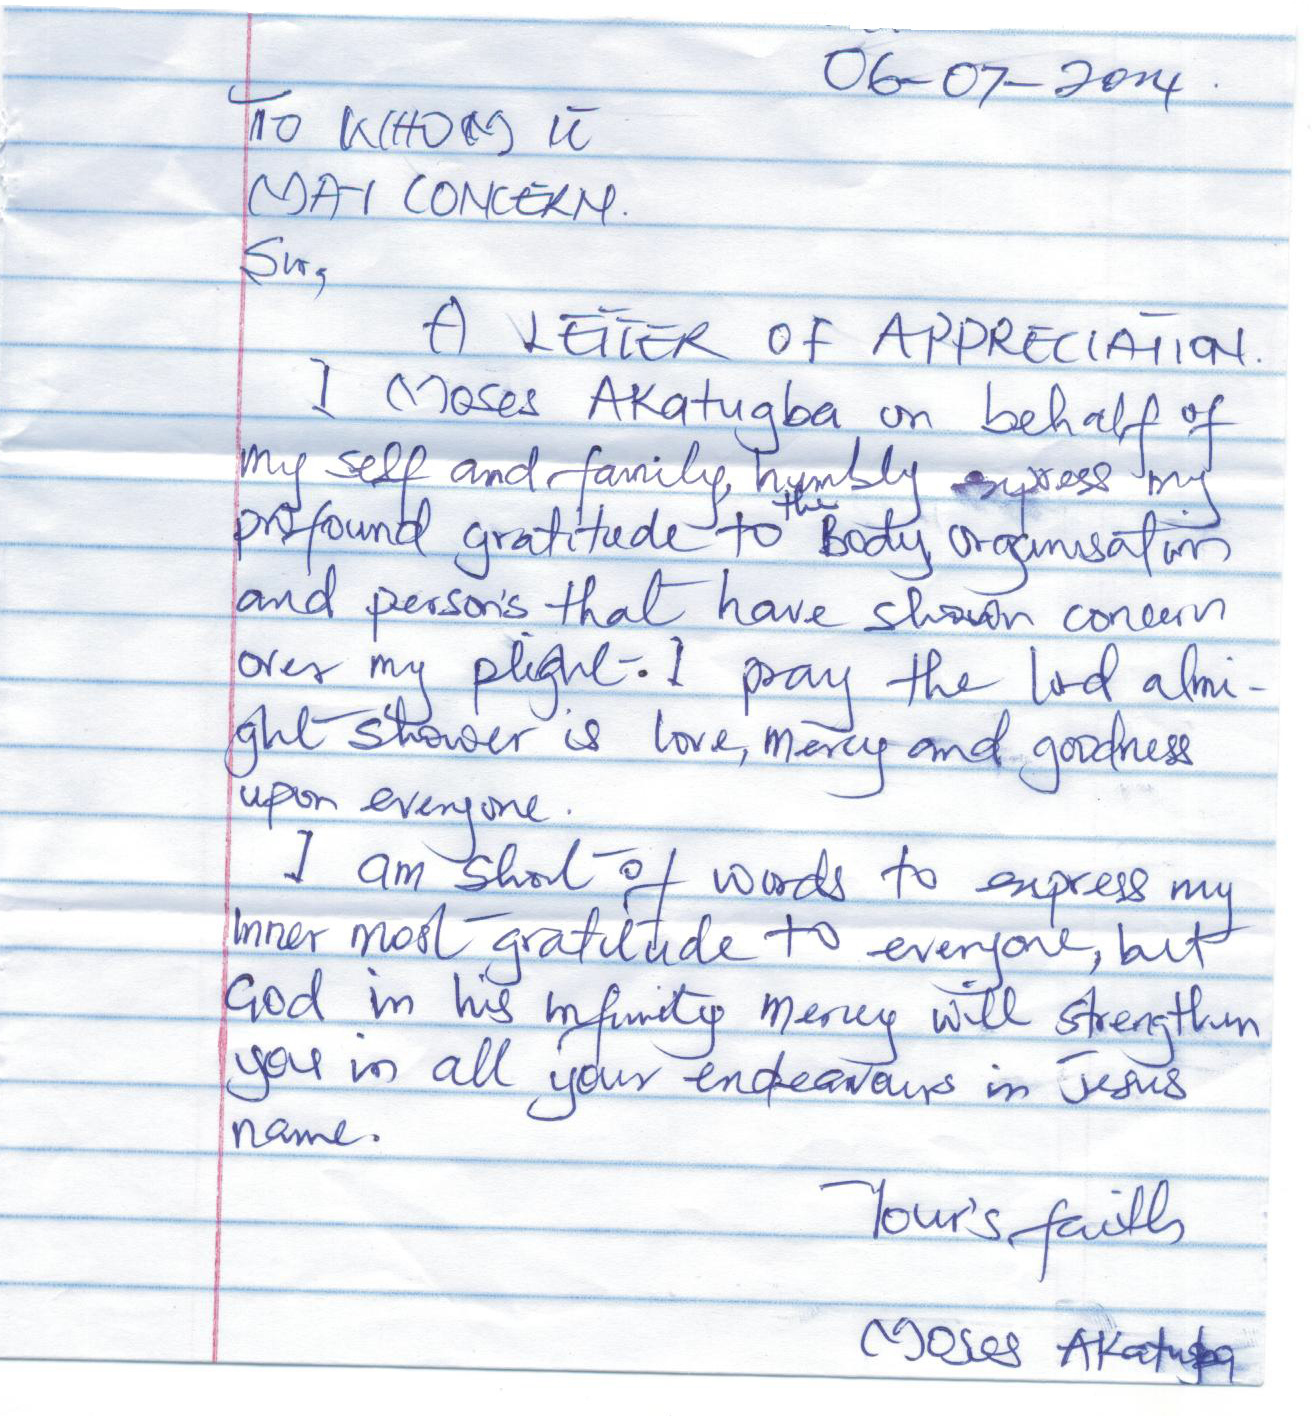 06-07-2014.
TO WHOM IT
MAY CONCERN.
Sir,
A LETTER OF APPRECIATION.
I Moses AKatugba on behalf of
my self and family, humbly express my
profound gratitude to the Body, organisation
and person's that have shown concern
over my plight. I pray the lord almi-
ght shower is love, mercy and goodness
upon everyone.
I am short of words to express my
inner most gratitude to everyone, but
God in his infinity mercy will strengthen
you in all your endeavours in Jesus
name.
Your's faith
Moses AKatugba